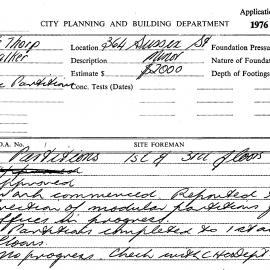 Applicatio
CITY PLANNING AND BUILDING DEPARTMENT 1976
Thorp Location 364 Sussex St Foundation Pressu
alker Description Minor Nature of Foundat
Estimate $ $7000 Depth of Footings
Partition Conc. Tests (Dates)
D.A. No. SITE FOREMAN
Partitions 1st & 3rd floors
Approved
Work commenced. Reported
erection of modular partitions
offices in progress.
Partitions completed to 1st an
floors.
No progress. Check with C.H.